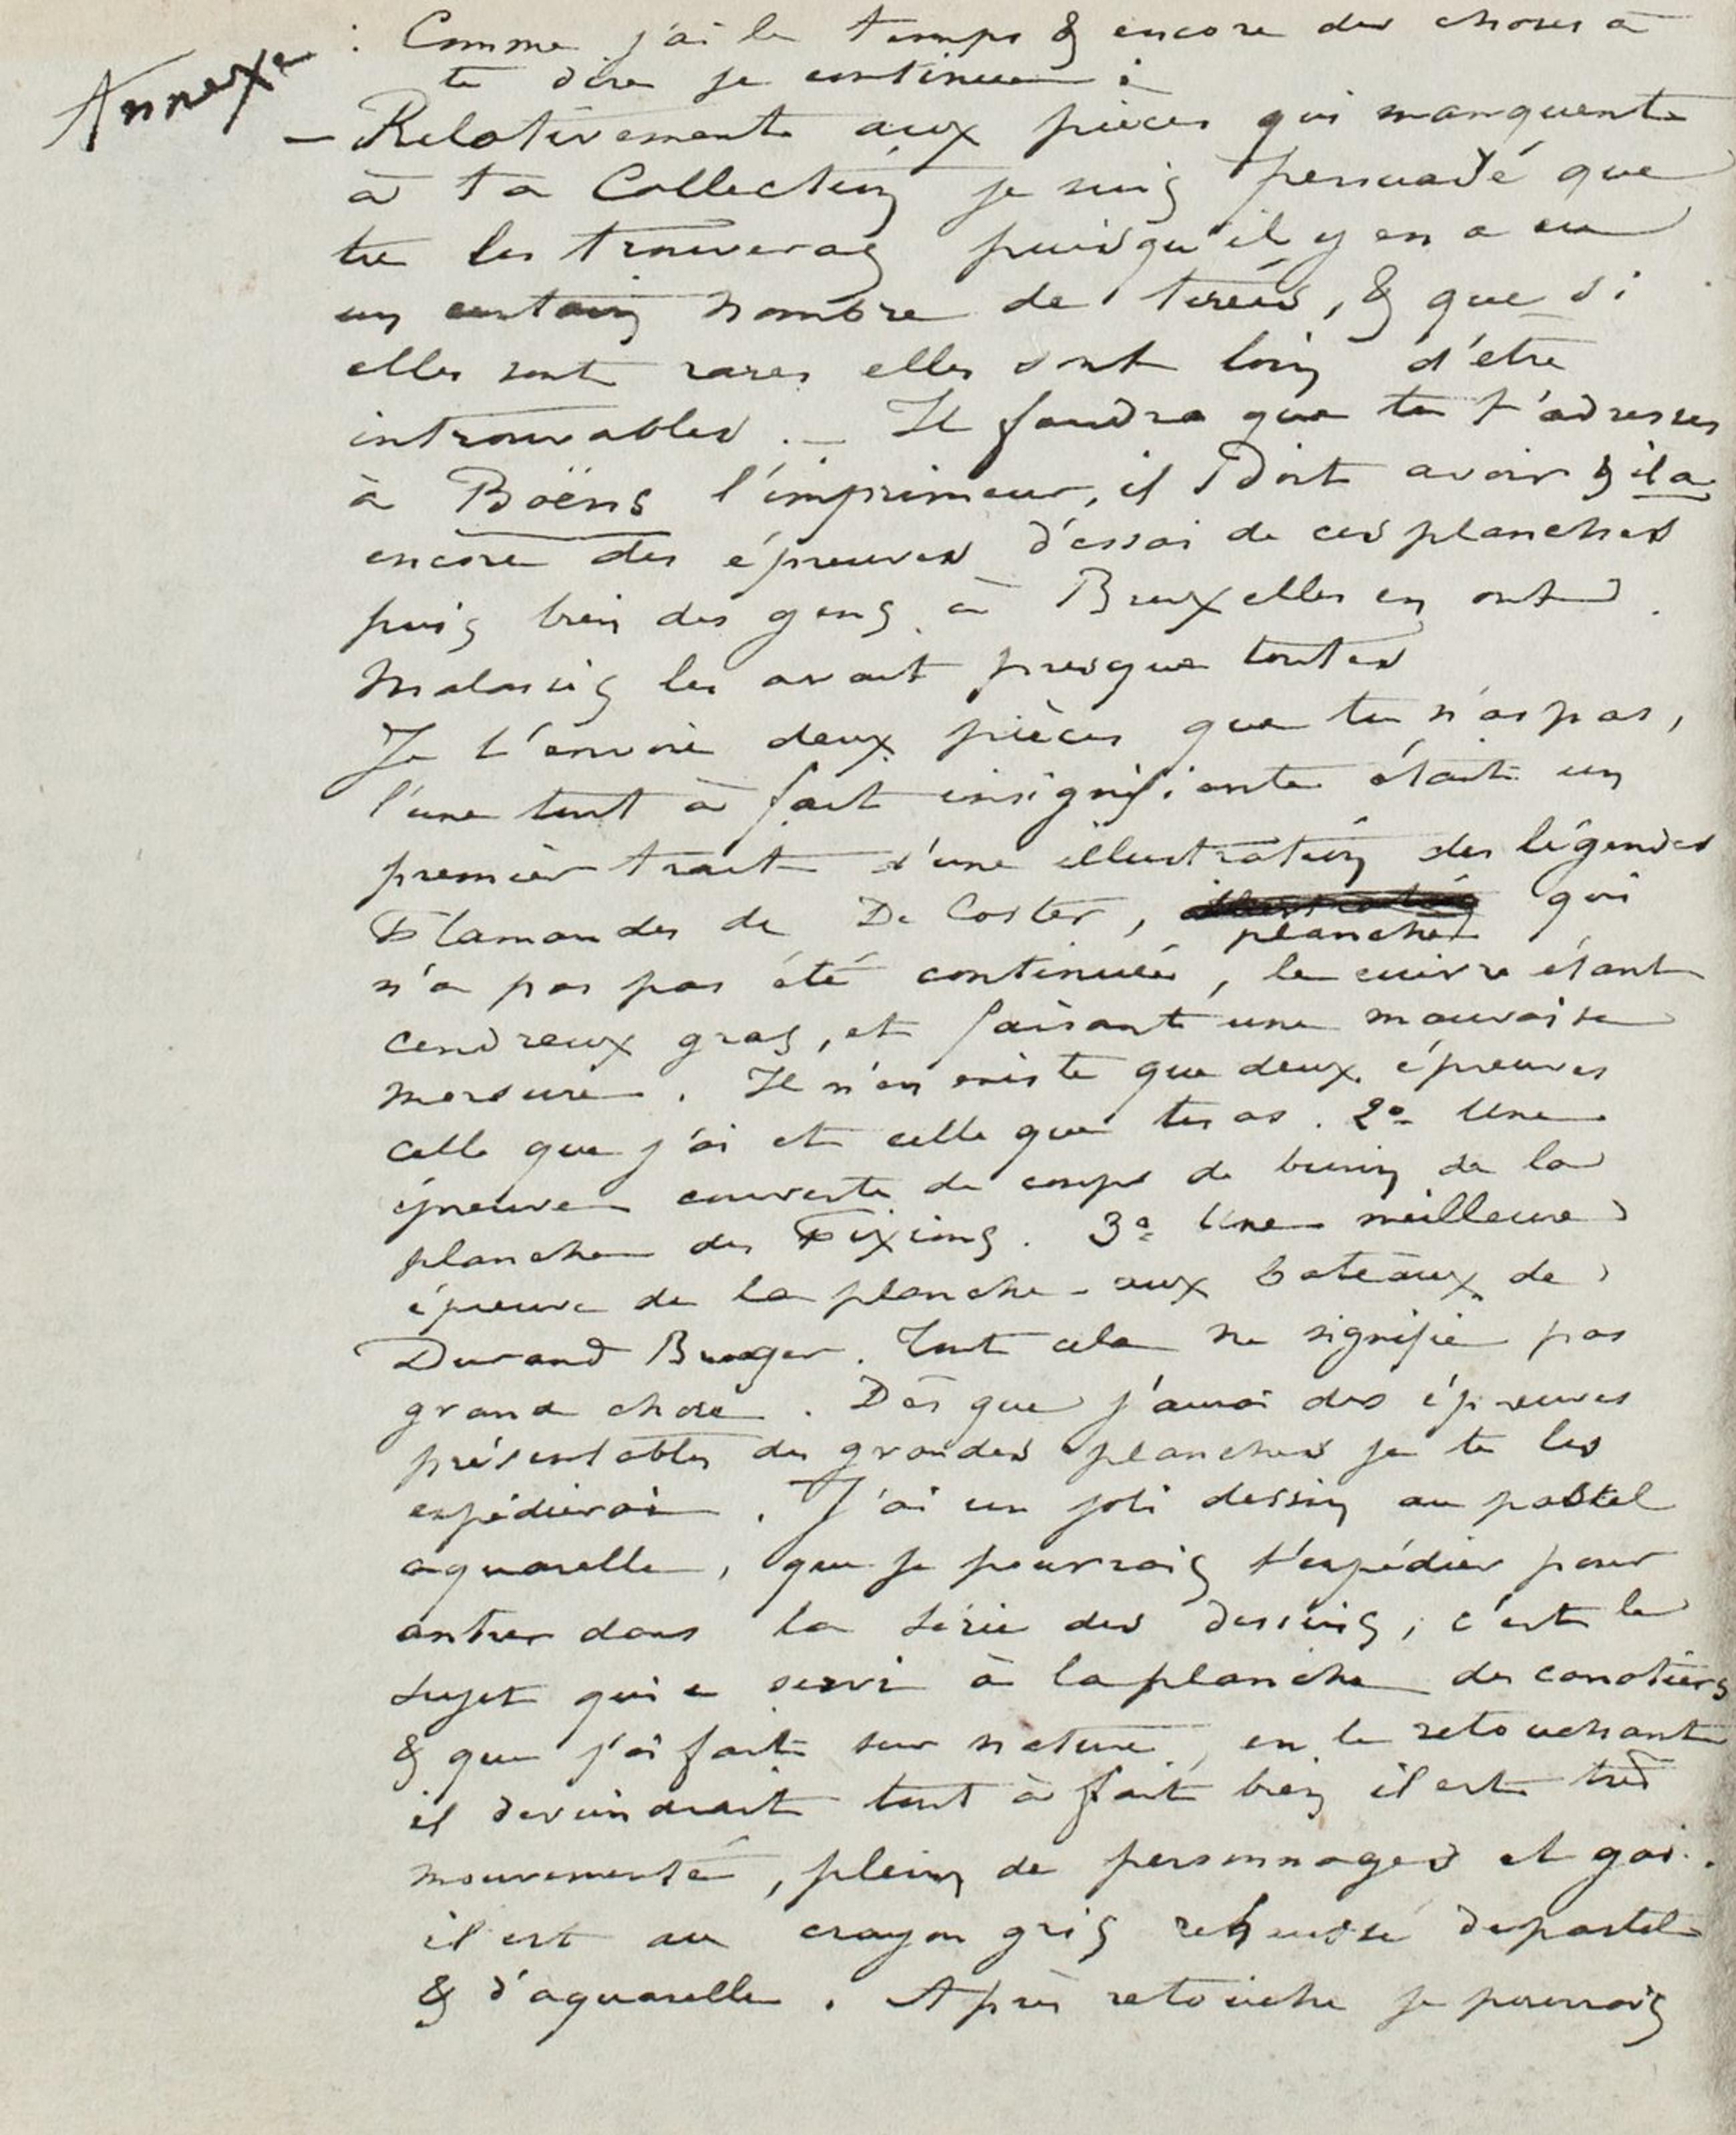 Annexe : Comme j'ai le temps & encore des choses à
te dire je continue :
— Relativement aux pièces qui manquent
à ta Collection je suis persuadé que
tu les trouveras puisqu'il y en a eu
un certain nombre de tirées, & que si
elles sont rares elles sont loin d'etre
introuvables. — Il faudra que tu t'adresses
à Boëns l'imprimeur, il doit avoir & il a
encore des épreuves d'essai de ces planches
puis bien des gens à Bruxelles en ont.
Malassis les avait presque toutes
Je t'envoie deux pièces que tu n'as pas,
l'une tout à fait insignifiante était un
premier trait d'une illustration des légendes
Flamandes de De Coster, planche qui
n'a pas pas été continuée, le cuivre étant
cendreux gras, et faisant une mauvaise
morsure. Il n'en existe que deux épreuves
celle que j'ai et celle que tu as. 2° Une
épreuve couverte de coups de burin de la
planche des Fixions. 3° Une meilleure
épreuve de la planche aux bateaux de
Durand Burger. Tout cela ne signifie pas
grand chose. Dès que j'aurai des épreuves
présentables des grandes planches je te les
expédierai. J'ai un joli dessin au pastel
aquarelle, que je pourrais t'expédier pour
entrer dans la série des dessins, c'est le
sujet qui a servi à la planche des canotiers
& que j'ai fait sur nature, en le retouchant
il deviendrait tout à fait bien il est très
mouvementé, plein de personnages et gai.
il est au crayon gris rehaussé de pastel
& d'aquarelle. Après retouche je pourrais